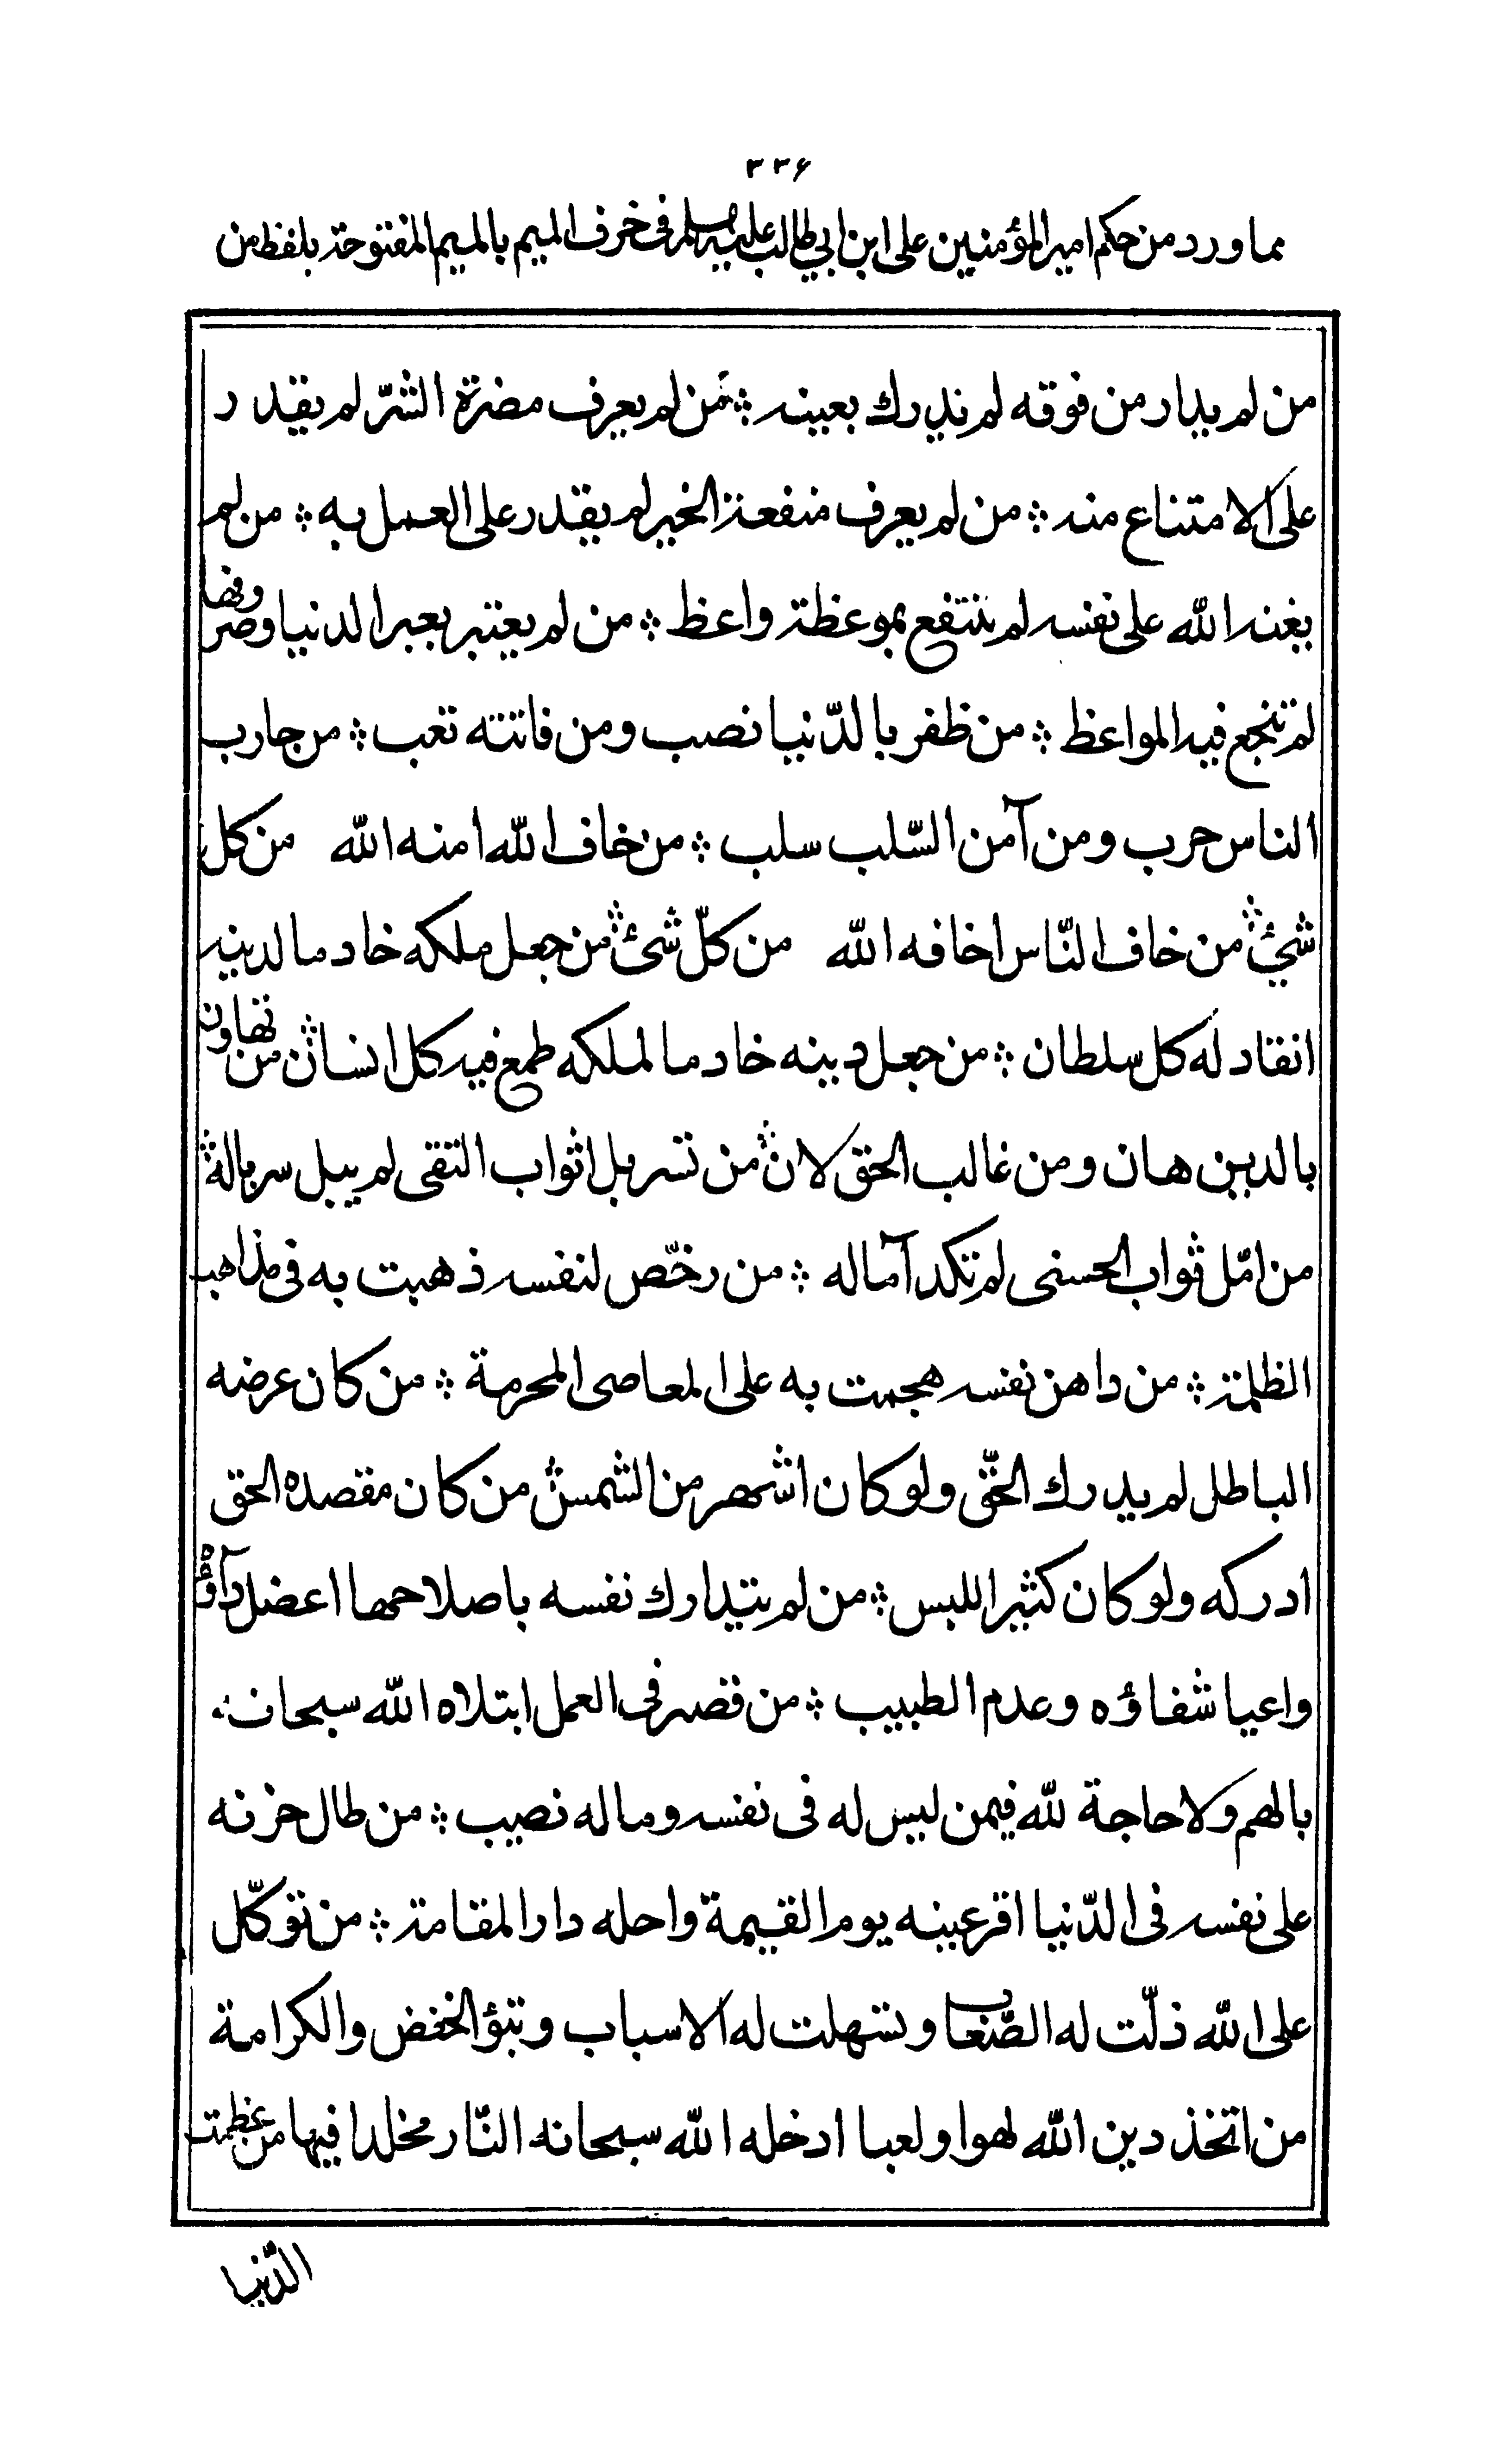 ٣٣۶
مما ورد من حكم امير المؤمنين على ابن ابي طالب عليه السلم فى حرف الميم بالميم المفتوحة بلفظ من
من لم يدار من فوقه لم يدرك بغيته ؞ من لم يعرف مضرة الشرّ لم يقدر
على الامتناع منه ؞ من لم يعرف منفعة الخير لم يقدر على العمل به ؞ من لم
يعنه الله على نفسه لم ينتفع بموعظة واعظ ؞ من لم يعتبر بعبر الدنيا وصروفها
لم تنجع فيه المواعظ ؞ من ظفر بالدّنيا نصب ومن فاتته تعب ؞ من حارب
الناس حرب ومن آمن السّلب سلب ؞ من خاف الله امنه الله من كل
شئ ؞ من خاف النّاس اخافه الله من كلّ شئ ؞ من جعل ملكه خادما لدينه
انقاد له كل سلطان ؞ من جعل دينه خادما لملكه طمع فيه كل انسان ؞ من تهاون
بالدين هان ومن غالب الحق لان ؞ من تسربل اثواب التقى لم يبل سرباله ؞
من امّل ثواب الحسنى لم تكد آماله ؞ من رخّص لنفسه ذهبت به فى مذاهب
الظلمة ؞ من داهن نفسه هجمت به على المعاصى المحرمة ؞ من كان غرضه
الباطل لم يدرك الحقّ ولو كان اشهر من الشمس ؞ من كان مقصده الحق
ادركه ولو كان كثير اللبس ؞ من لم يتدارك نفسه باصلاحها اعضل دآؤه
واعيا شفاؤه وعدم الطبيب ؞ من قصر فى العمل ابتلاه الله سبحانه
بالهم ولا حاجة لله فيمن ليس له فى نفسه وماله نصيب ؞ من طال حزنه
على نفسه فى الدّنيا اقر عينه يوم القيمة واحله دار المقامة ؞ من توكّل
على الله ذلّت له الصّعاب وتسهلت له الاسباب وتبؤ الخفض والكرامة
من اتخذ دين الله لهوا ولعبا ادخله الله سبحانه النّار مخلدا فيها من عظمت
الدّنيا